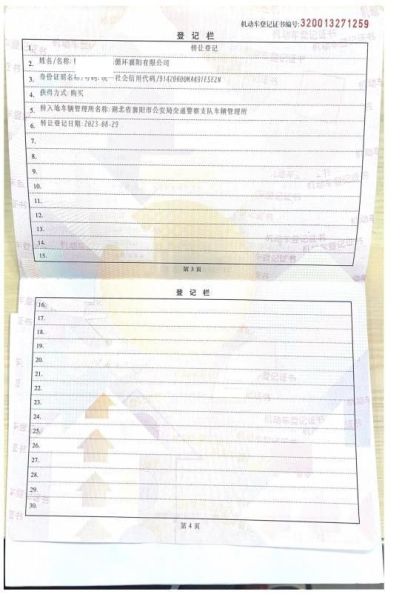 机动车登记证书编号:320013271259
登记栏
1. 转让登记
2. 姓名/名称: 循环襄阳有限公司
3. 身份证明名称/号码:统一社会信用代码/91420600MA491E5E2N
4. 获得方式:购买
5. 转入地车辆管理所名称:湖北省襄阳市公安局交通警察支队车辆管理所
6. 转让登记日期:2023-08-29
7.
8.
9.
10.
11.
12.
13.
14.
15.
第3页
登记栏
16.
17.
18.
19.
20.
21.
22.
23.
24.
25.
26.
27.
28.
29.
30.
第4页